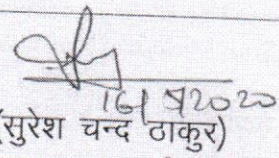 16/9/2020
(सुरेश चन्द ठाकुर)